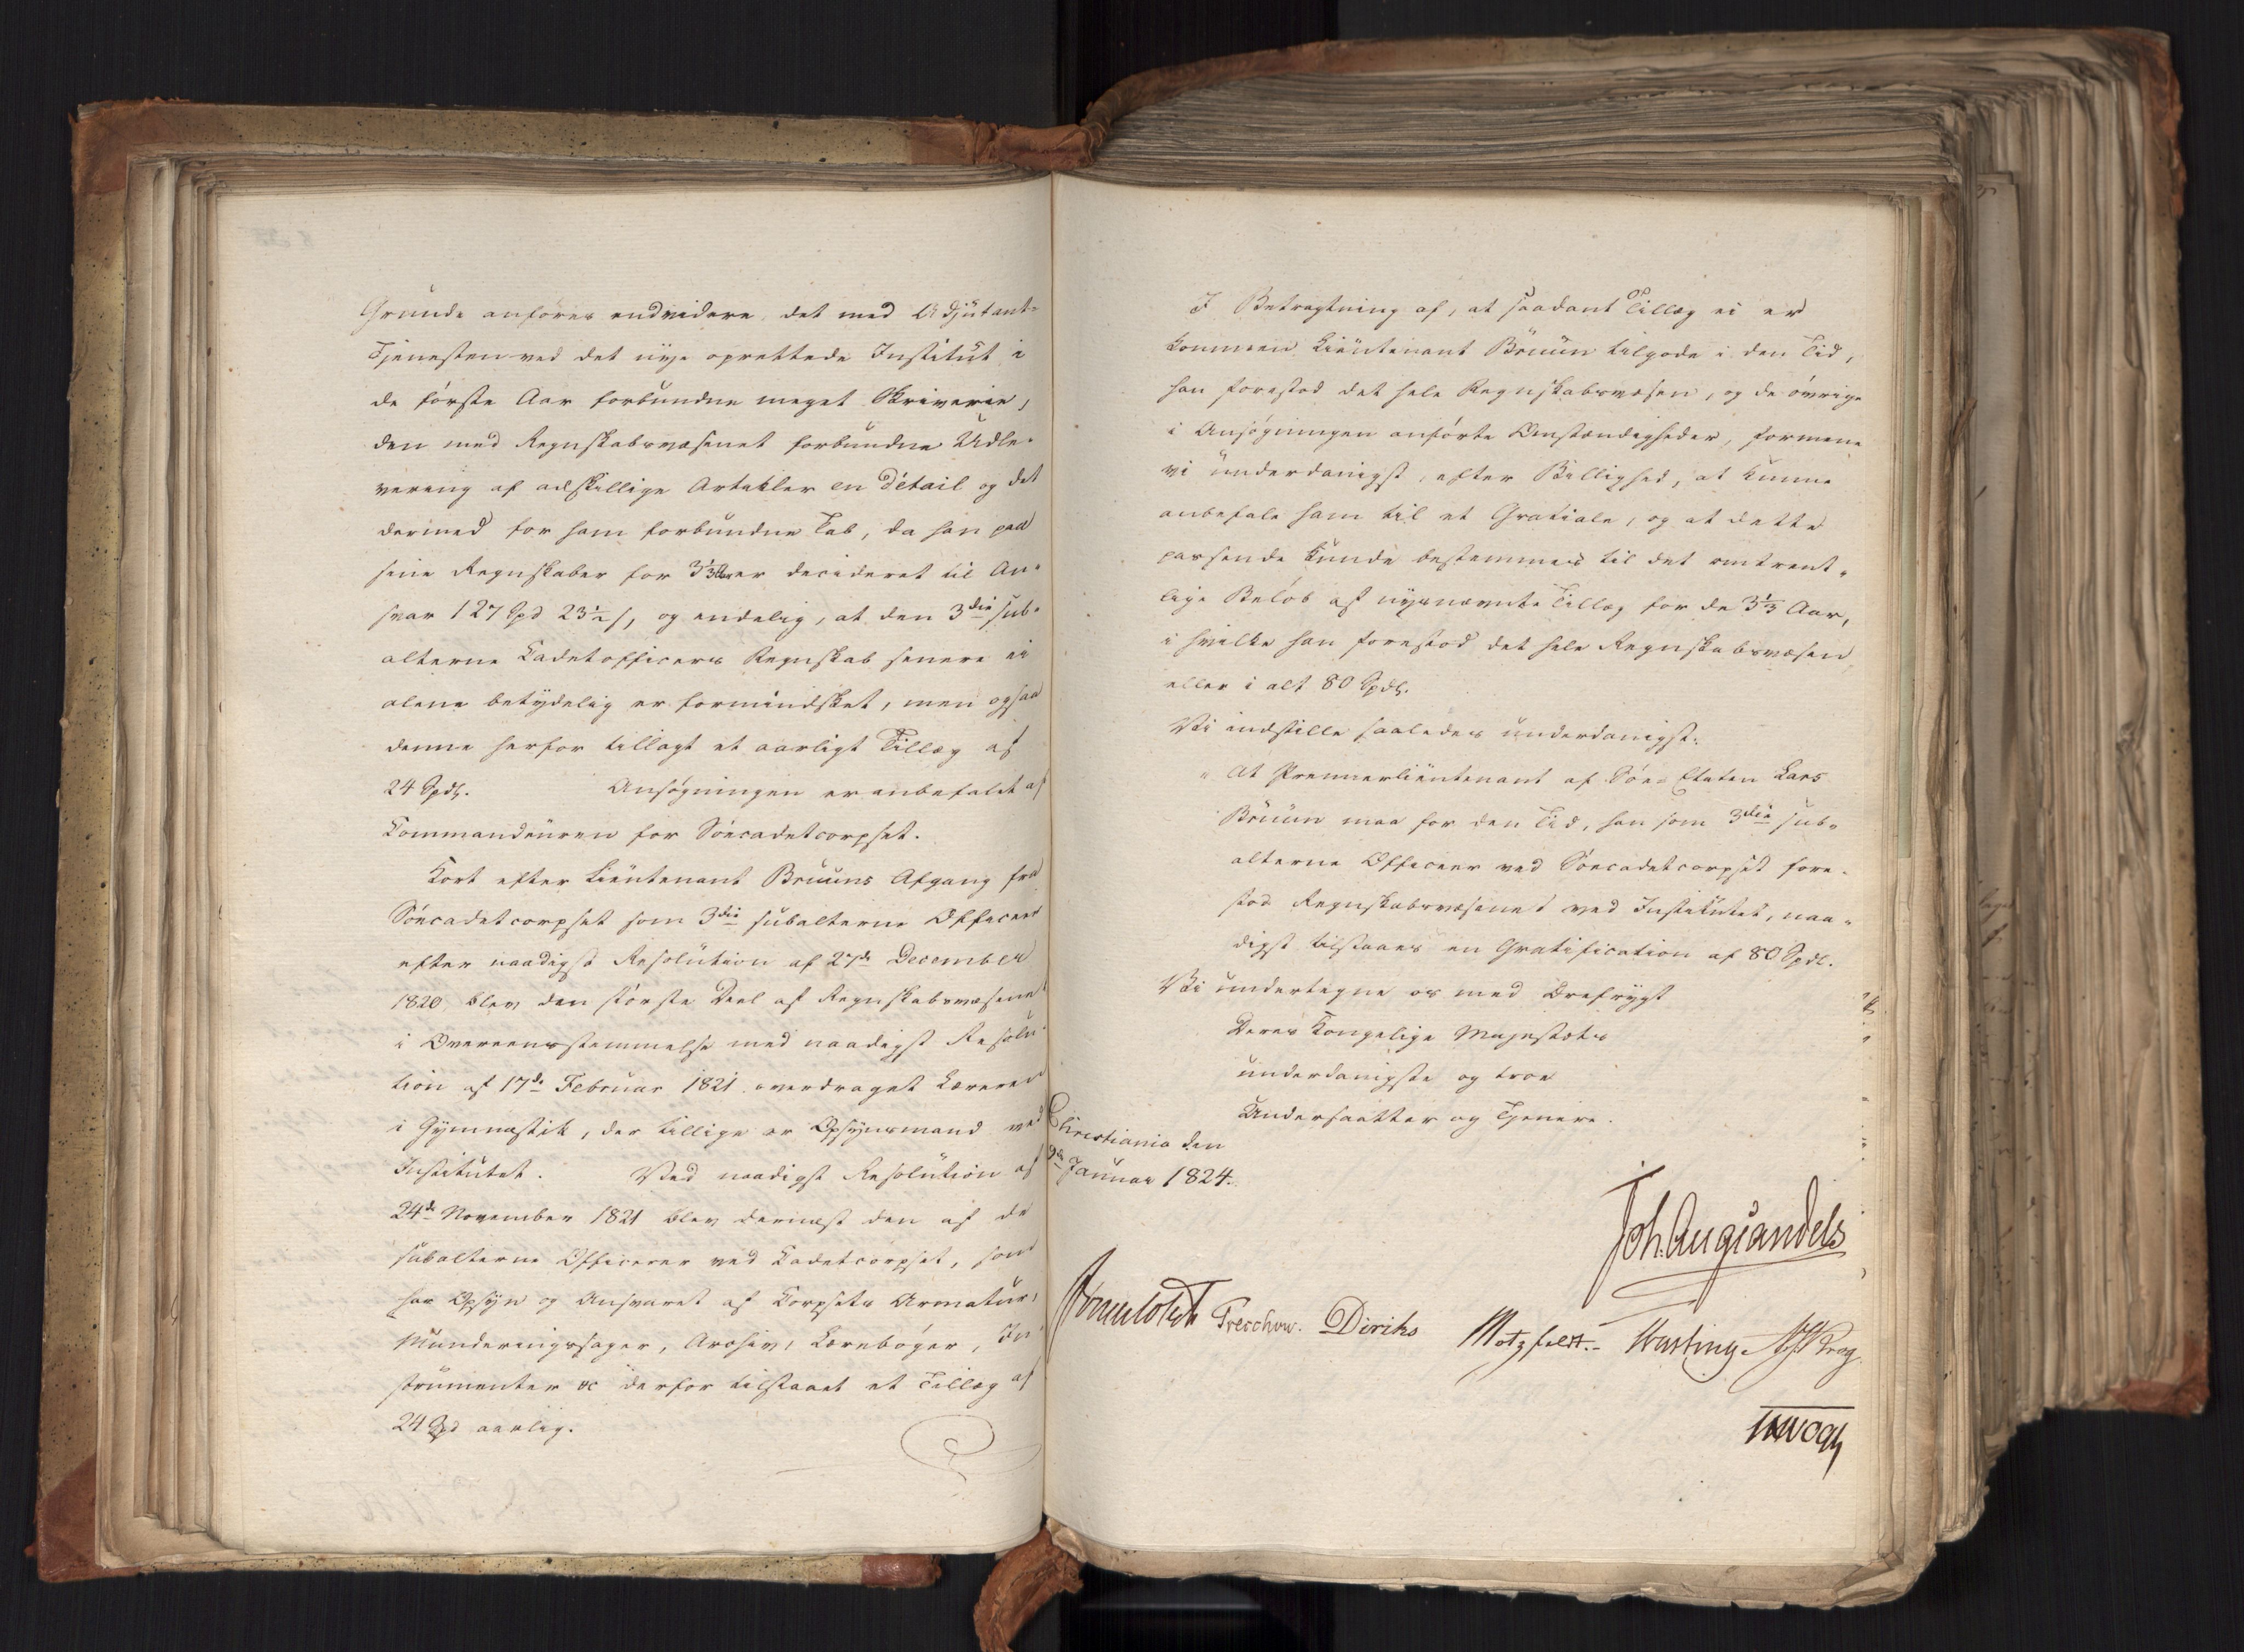 Grunde anføres endvidere, det med Adjutant-
Tjenesten ved det nye oprettede Institut i
de første Aar forbundne meget Skriverie,
den med Regnskabsvæsenet forbundne Udle-
vering af adskillige Artikler en détail og det
dermed for ham forbundne Tab, da han paa
sine Regnskaber for 3⅓ Aar er decideret til An-
svar 127 Spd 23½ s, og endelig, at den 3die sub-
alterne Cadetofficers Regnskab senere ei
alene betydelig er formindsket, men ogsaa
denne herfor tillagt et aarligt Tillæg af
24 Spdlr. Ansøgningen er anbefalet af
Commandeuren for Søecadetcorpset.
Kort efter Lieutenant Bruuns Afgang fra
Søecadetcorpset som 3die subalterne Officeer
efter naadigst Resolution af 27de December
1820, blev den største Deel af Regnskabsvæsenet
i Overeensstemmelse med naadigst Resolu-
tion af 17de Februar 1821 overdraget Læreren
i Gymnastik, der tillige er Opsynsmand ved
Institutet. Ved naadigst Resolution af
24de November 1821 blev dernæst den af de
subalterne Officerer ved Cadetcorpset, som
har Opsyn og Ansvaret af Corpsets Armatur,
Munderingssager, Archiv, Lærebøger, In-
strumenter &c derfor tilstaaet et Tillæg af
24 Spd aarlig.
I Betragtning af, at saadant Tillæg ei er
kommen Lieutenant Bruun tilgode i den Tid,
han forestod det hele Regnskabsvæsen, og de øvrige
i Ansøgningen anførte Omstændigheder, formene
vi underdanigst, efter Billighed, at kunne
anbefale ham til et Gratiale, og at dette
passende kunde bestemmes til det omtrent-
lige Beløb af nysnævnte Tillæg for de 3⅓ Aar,
i hvilke han forestod det hele Regnskabsvæsen,
eller i alt 80 Spdlr.
Vi indstille saaledes underdanigst:
"At Premierlieutenant af Søe-Etaten Lars
Bruun maa for den Tid, han som 3die sub-
alterne Officeer ved Søecadetcorpset fore-
stod Regnskabsvæsenet ved Institutet, naa-
digst tilstaaes en Gratification af 80 Spdlr.
Vi undertegne os med Ærefrygt
Deres Kongelige Majestæts
underdanigste og troe
Undersaatter og Tjenere.
Christiania den
9de Januar 1824.
Joh. Aug Sandels
Sommerhielm Treschow. Diriks Motzfeldt. Hasting Krog
Vogt